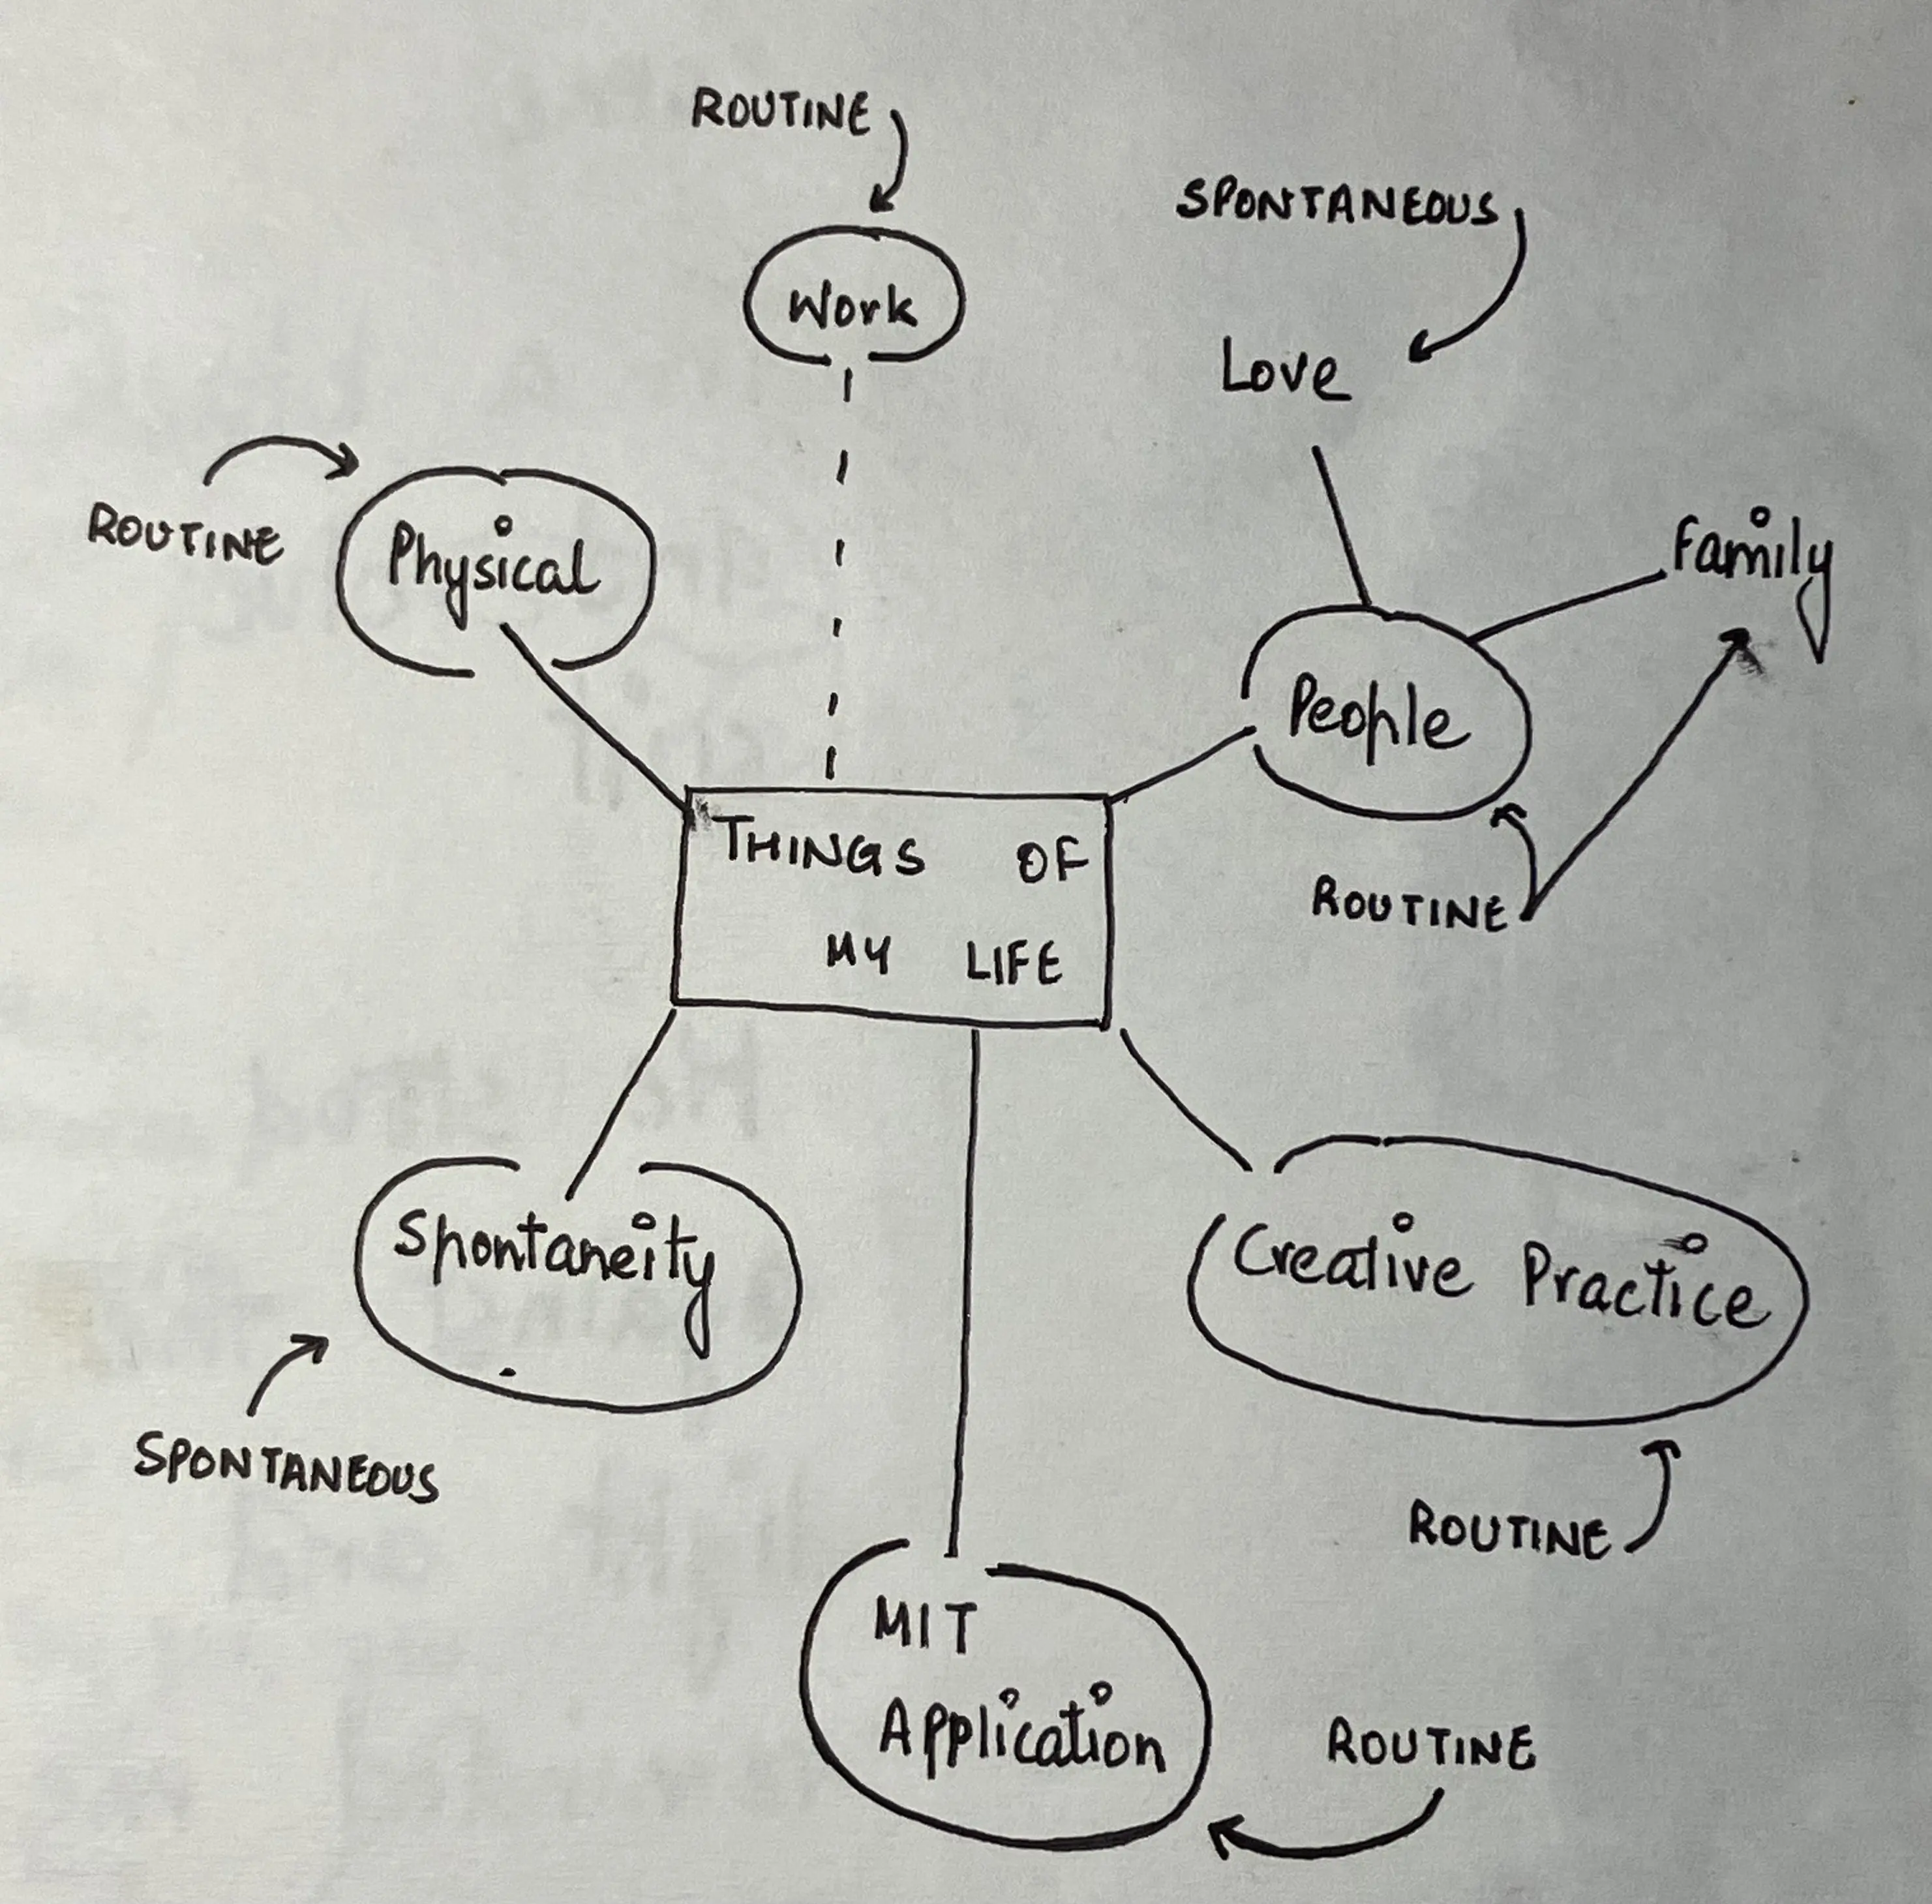 ROUTINE
Work
SPONTANEOUS
Love
ROUTINE
Physical
Family
People
ROUTINE
THINGS OF
MY LIFE
Spontaneity
SPONTANEOUS
Creative Practice
ROUTINE
MIT
Application
ROUTINE